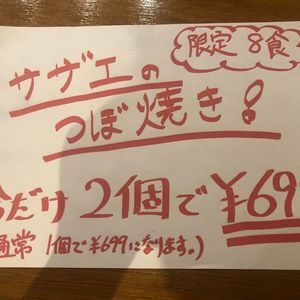 限定8食
サザエの
つぼ焼き!
今だけ 2個で ¥69
通常 1個で¥699になります。)